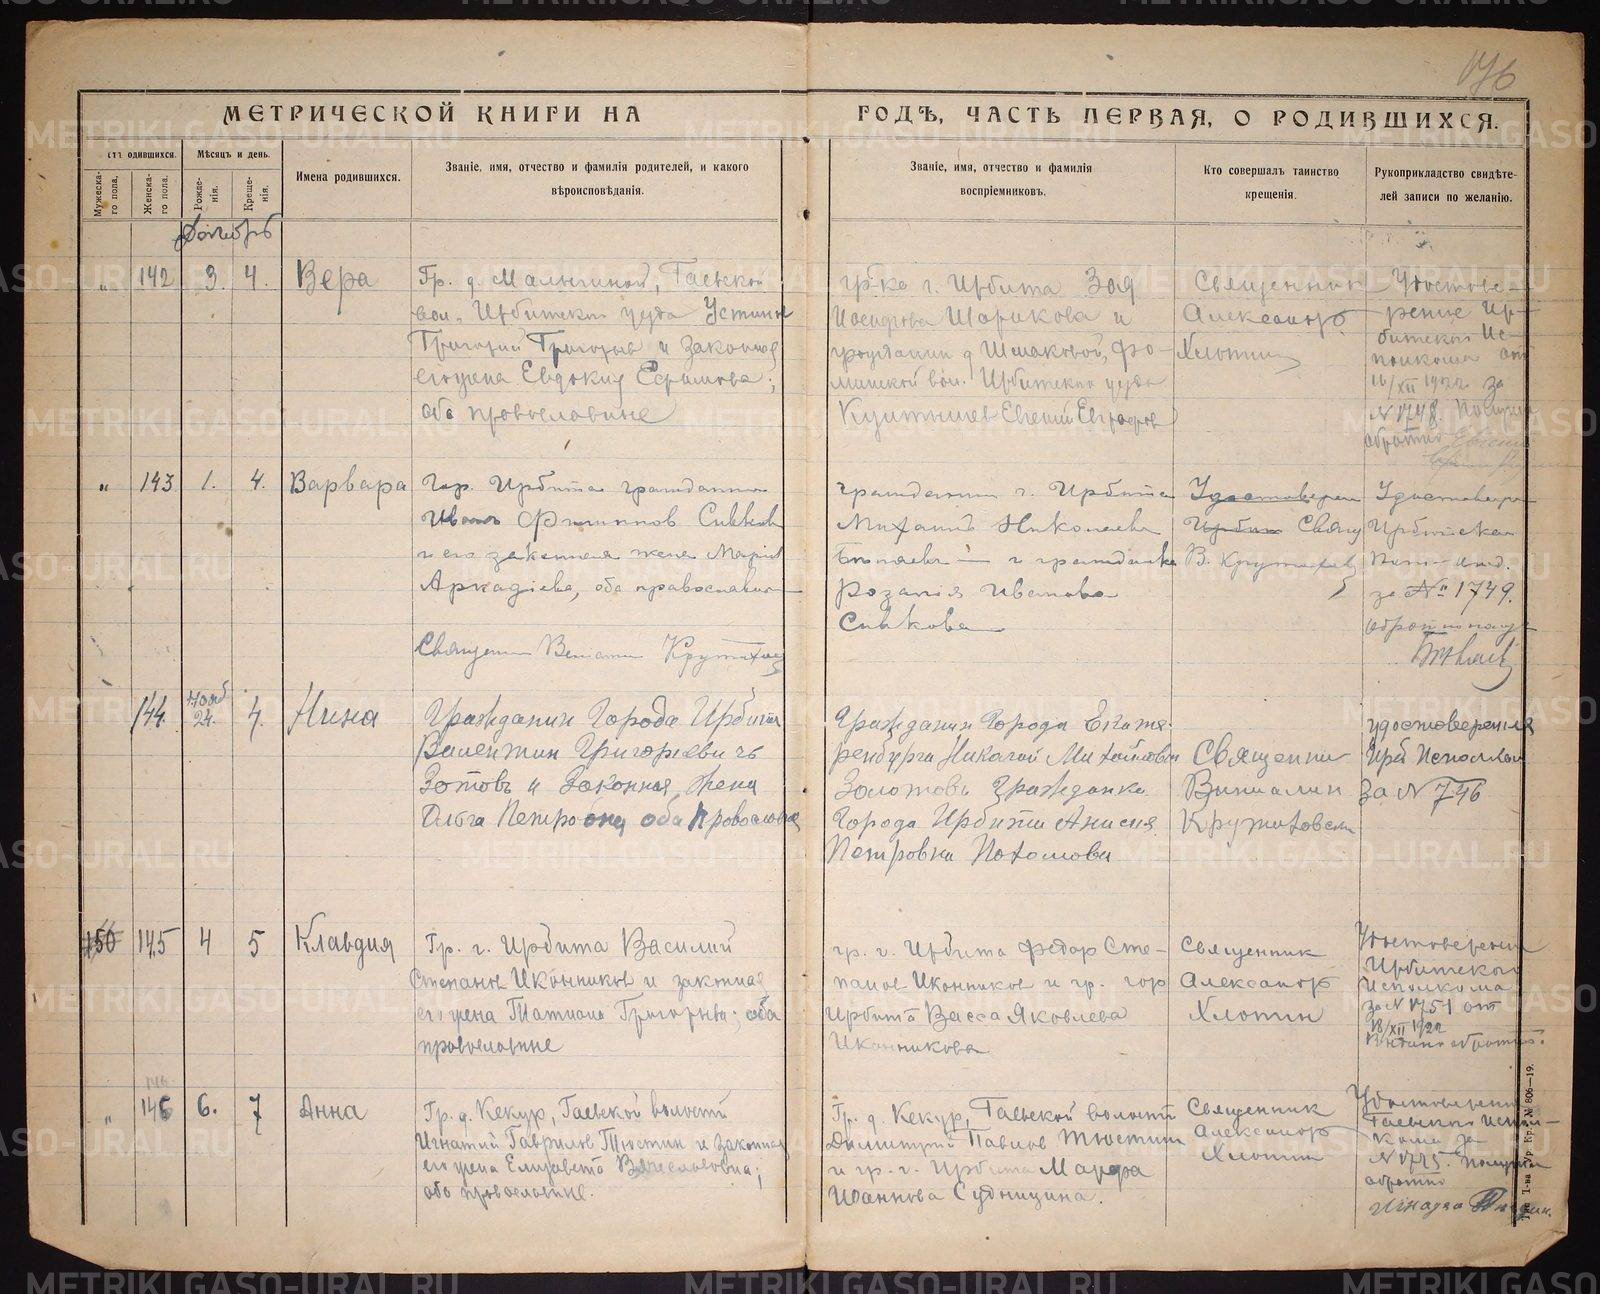 176
МЕТРИЧЕСКОЙ КНИГИ НА ГОДЪ, ЧАСТЬ ПЕРВАЯ, О РОДИВШИХСЯ.
одившихся.
Мужеска-го пола.
Женска-го пола.
Мѣсяцъ и день.
Рожде-нія.
Креще-нія.
Имена родившихся.
Званіе, имя, отчество и фамилія родителей, и какого
вѣроисповѣданія.
Званіе, имя, отчество и фамилія
воспріемниковъ.
Кто совершалъ таинство
крещенія.
Рукоприкладство свидѣте-
лей записи по желанію.
„ 142 3. 4. Вера
Гр. д. Мальгиной, Гаевской
вол. Ирбитского уезда Устинов
Григорий Григорьев и законная
его жена Евдокия Ефимова;
оба православные
гр-ка г. Ирбита Зоя
Иосифова Шарикова и
гражданин д Шмаковой, Фо-
минской вол. Ирбитского уезда
Евгений Евграфов
Священник
Александр
Хлопин
Удостове-
рение Ир-
битского Ис-
полкома от
16/XII 1922 за
N 1748. Получил
обратно
„ 143 1. 4. Варвара
Гор. Ирбита гражданин
Иванъ Филиппов Сивков
и его законная жена Мария
Аркадіева, оба православные
Священник Крутиховский
гражданин г. Ирбита
Михаилъ Николаевъ
и гражданка
Розалія Иванова
Сивкова
Удостоверен
Ирбит Свящ
В. Крутиховский
Удостоверение
Ирбитскаго
за № 1749.
обратно получил
144 Нояб 24. 4. Нина
Гражданин Города Ирбита
Валентин Григорьевичъ
Зотовъ и Законная Жена
Ольга Петровна оба Православные
Гражданин Города Екате-
ренбурга Николай Михайлович
Золотовъ Гражданка
Города Ирбити Анисия
Петровна Пахомова
Священник
Виталий
Крутиховский
удостоверения
Ирб Исполком
За N 746
150 145 4 5 Клавдия
Гр. г. Ирбита Василий
Степанов Иконников и законная
его жена Татиана Григорьева; оба
православные
гр. г. Ирбита Федор Сте-
панов Иконников и гр. гор
Ирбита Васса Яковлева
Иконникова
Священник
Александр
Хлопин
Удостоверение
Ирбитского
Исполкома
за N 1751 от
18/XII 1922
146
„ 146 6. 7 Анна
Гр. д. Кекур, Гаевской волости
Игнатий Гаврилов Тюстин и законная
его жена Елизавета Вячеславовна;
оба православные.
Гр. д. Кекур, Гаевской волости
Димитрий Павлов Тюстин
и гр. г. Ирбита Марфа
Иоаннова Судницина.
Священник
Александр
Хлопин
Удостоверение
Гаевского Испол-
кома за
N 1725. Получил
обратно
METRIKI.GASO-URAL.RU